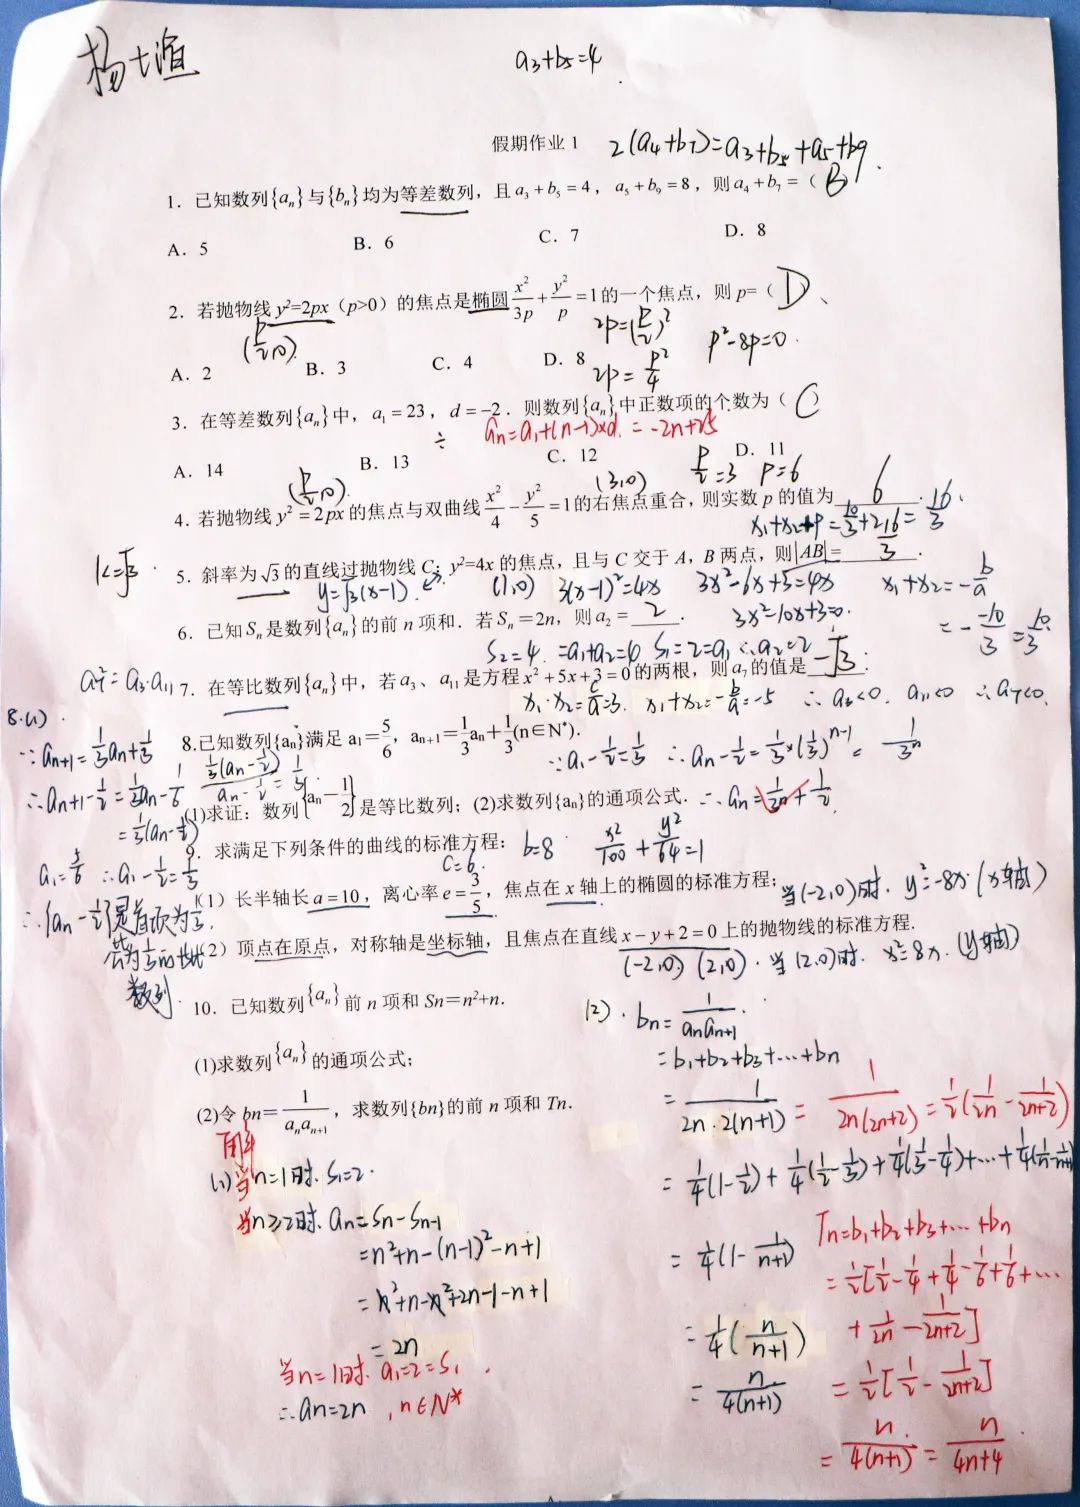 a₃+b₅=4
假期作业 1
2(a₄+b₇)=a₃+b₅+a₅+b₉.
1. 已知数列{aₙ}与{bₙ}均为等差数列，且 a₃+b₅=4，a₅+b₉=8，则 a₄+b₇=（ B
A. 5 B. 6 C. 7 D. 8
2. 若抛物线 y²=2px（p>0）的焦点是椭圆 x²/3p + y²/p =1 的一个焦点，则 p=（ D ）、
(p/2,0) 2p=(p/2)² p²-8p=0.
A. 2 B. 3 C. 4 D. 8
2p=p²/4
3. 在等差数列{aₙ}中，a₁=23，d=-2. 则数列{aₙ}中正数项的个数为（ C ）
÷ aₙ=a₁+(n-1)×d. =-2n+25
A. 14 B. 13 C. 12 D. 11
(p/2,0). (3,0) p/2=3 p=6
4. 若抛物线 y²=2px 的焦点与双曲线 x²/4 - y²/5 =1 的右焦点重合，则实数 p 的值为 6 .
x₁+x₂+p=10/3+2=16/3 16/3.
k=√3.
5. 斜率为 √3 的直线过抛物线 C: y²=4x 的焦点，且与 C 交于 A，B 两点，则|AB|= 16/3 .
y=√3(x-1). (1,0) 3(x-1)²=4x 3x²-6x+3=4x x₁+x₂=-b/a
6. 已知 Sₙ 是数列{aₙ}的前 n 项和. 若 Sₙ=2n，则 a₂= 2 .
3x²-10x+3=0. =- -10/3 =10/3.
S₂=4. =a₁+a₂=4 S₁=2=a₁ ∴a₂=2
a₇²=a₃·a₁₁
7. 在等比数列{aₙ}中，若 a₃、a₁₁ 是方程 x²+5x+3=0 的两根，则 a₇ 的值是 -√3 .
x₁·x₂=c/a=3. x₁+x₂=-b/a=-5 ∴a₃<0. a₁₁<0 ∴a₇<0.
8.已知数列{aₙ}满足 a₁=5/6，aₙ₊₁=1/3aₙ+1/3(n∈N*).
(1)求证：数列{aₙ-1/2}是等比数列；(2)求数列{aₙ}的通项公式.
8.(1).
∵aₙ₊₁=1/3aₙ+1/3
∴aₙ₊₁-1/2=1/3aₙ-1/6
=1/3(aₙ-1/2)
1/3(aₙ-1/2)/aₙ-1/2=1/3
a₁=5/6 ∴a₁-1/2=1/3
∴{aₙ-1/2}是首项为1/3.
公比为1/3的等比
数列.
∵a₁-1/2=1/3 ∴aₙ-1/2=1/3×(1/3)ⁿ⁻¹= 1/3ⁿ
∴aₙ=1/3ⁿ+1/2.
9. 求满足下列条件的曲线的标准方程：
b=8 x²/100+y²/64=1
c=6.
（1）长半轴长 a=10，离心率 e=3/5，焦点在 x 轴上的椭圆的标准方程；
当(-2,0)时. y²=-8x.(x轴)
（2）顶点在原点，对称轴是坐标轴，且焦点在直线 x-y+2=0 上的抛物线的标准方程.
(-2,0) (2,0). 当(2,0)时. x²=8x. (y轴)
10. 已知数列{aₙ}前 n 项和 Sn=n²+n.
(1)求数列{aₙ}的通项公式；
(2)令 bn=1/aₙaₙ₊₁，求数列{bn}的前 n 项和 Tn.
解
(1)当n=1时. S₁=2.
当n≥2时. aₙ=Sₙ-Sₙ₋₁
=n²+n-(n-1)²-n+1
=n²+n-n²+2n-1-n+1
=2n
当n=1时. a₁=2=S₁.
∴aₙ=2n ,n∈N*
(2). bₙ=1/aₙaₙ₊₁.
=b₁+b₂+b₃+…+bₙ
=1/2n·2(n+1) =1/2n(2n+2) =1/2(1/2n-1/2n+2)
=1/4(1-1/2)+1/4(1/2-1/3)+1/4(1/3-1/4)+…+1/4(1/n-1/n+1)
=1/4(1-1/n+1)
=1/4(n/n+1)
=n/4(n+1)
Tₙ=b₁+b₂+b₃+…+bₙ
=1/2[1/2-1/4+1/4-1/6+1/6+…
+1/2n-1/2n+2]
=1/2[1/2-1/2n+2]
=n/4(n+1)=n/4n+4